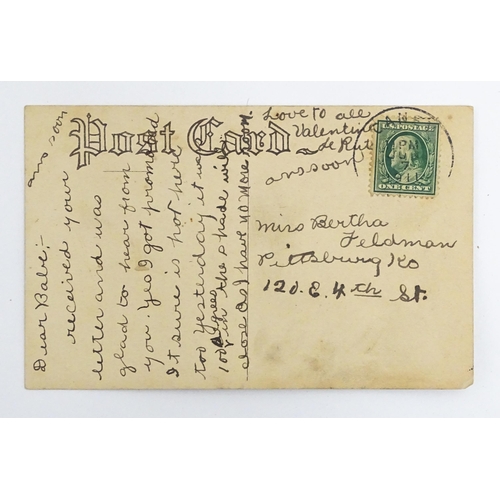 Post Card
ans soon
Dear Babe;-
received your
letter and was
glad to hear from
you. Yes I got promoted
It sure is hot here
too Yesterday it was
100 degrees in the shade will
close as I have no more room
Love to all
Valentine
ans soon
U.S. POSTAGE
ONE CENT
PM
Miss Bertha
Feldman
Pittsburg Ks
120. E. 4th St.